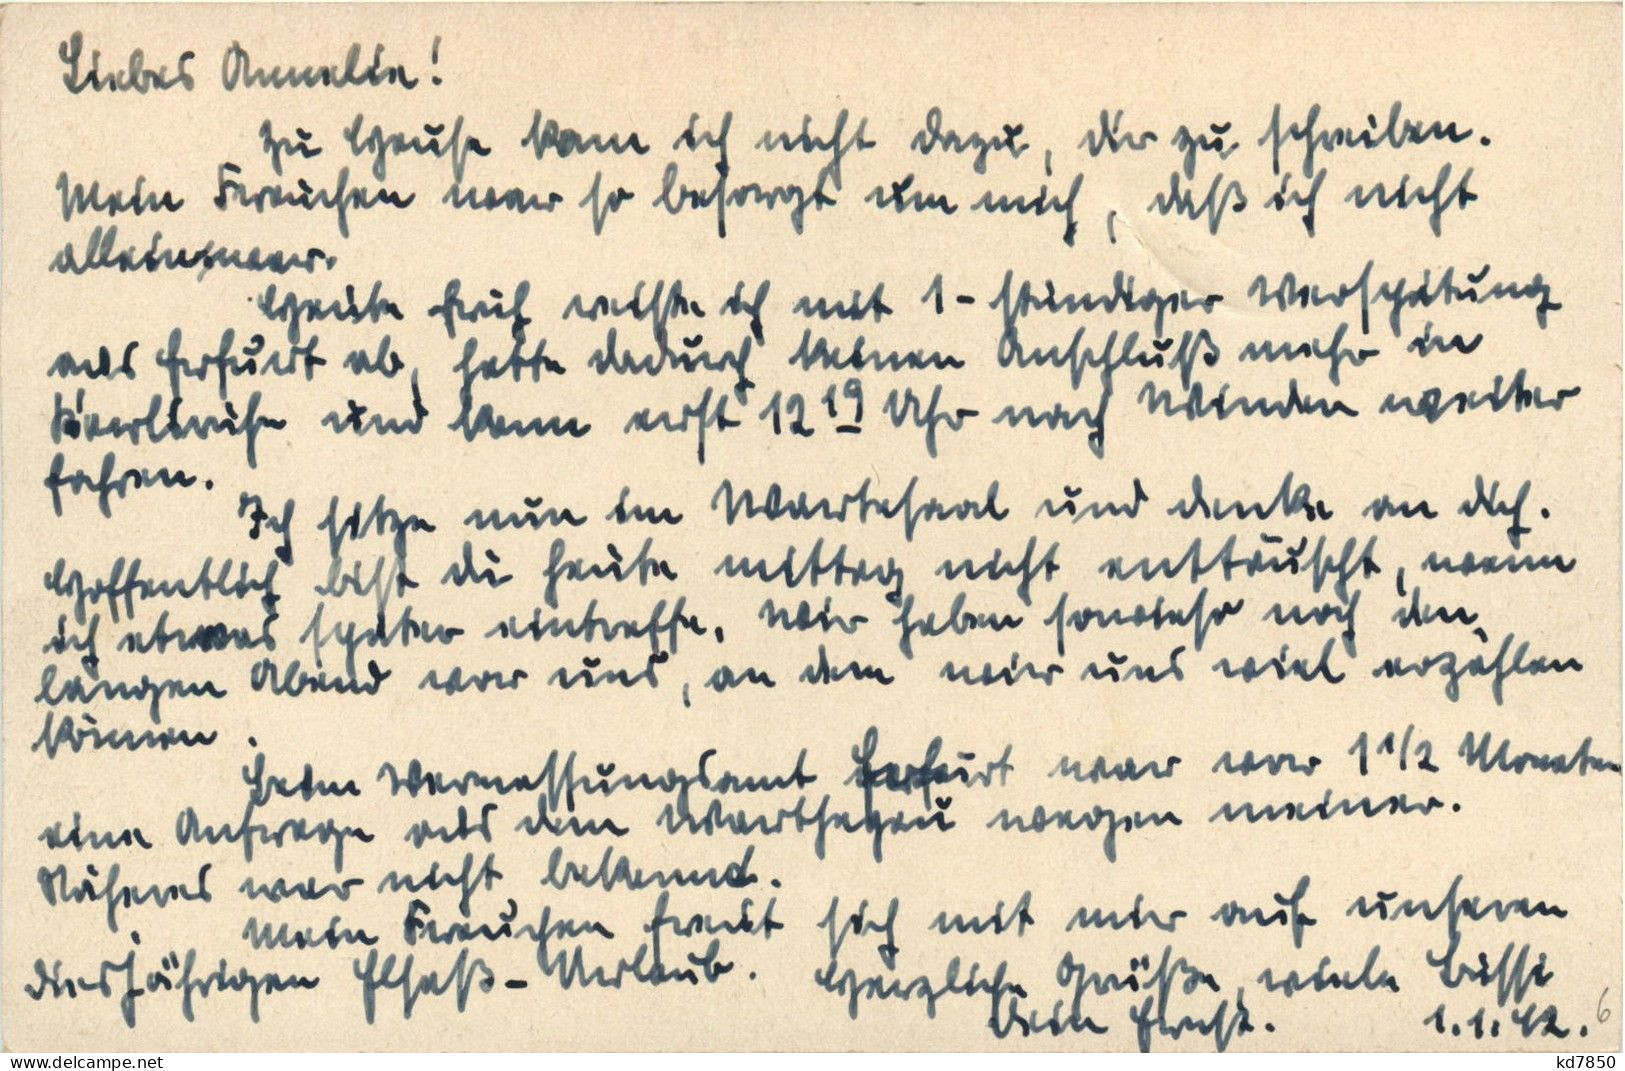 Liebes Annelie!
Zu Hause kam ich nicht dazu, dir zu schreiben.
Mein Frauchen war so besorgt um mich, daß ich nicht
allein war.
Heute früh reiste ich mit 1-stündiger Verspätung
aus Erfurt ab, hatte dadurch keinen Anschluß mehr in
Karlsruhe und kann erst 12 19 Uhr nach Winden weiter
fahren.
Ich sitze nun im Wartesaal und denke an dich.
Hoffentlich bist du heute mittag nicht enttäuscht, wenn
ich etwas später eintreffe. Wir haben sowieso noch den
langen Abend vor uns, an dem wir uns viel erzählen
können.
Beim Vermessungsamt Erfurt war vor 1 1/2 Monaten
eine Anfrage aus dem Warthegau wegen meiner.
Näheres war nicht bekannt.
Mein Frauchen freut sich mit mir auf unseren
diesjährigen Elsaß-Urlaub. Herzliche Grüße, viele Bussi
Dein Ernst. 1.1.42.
6
www.delcampe.net
kd7850